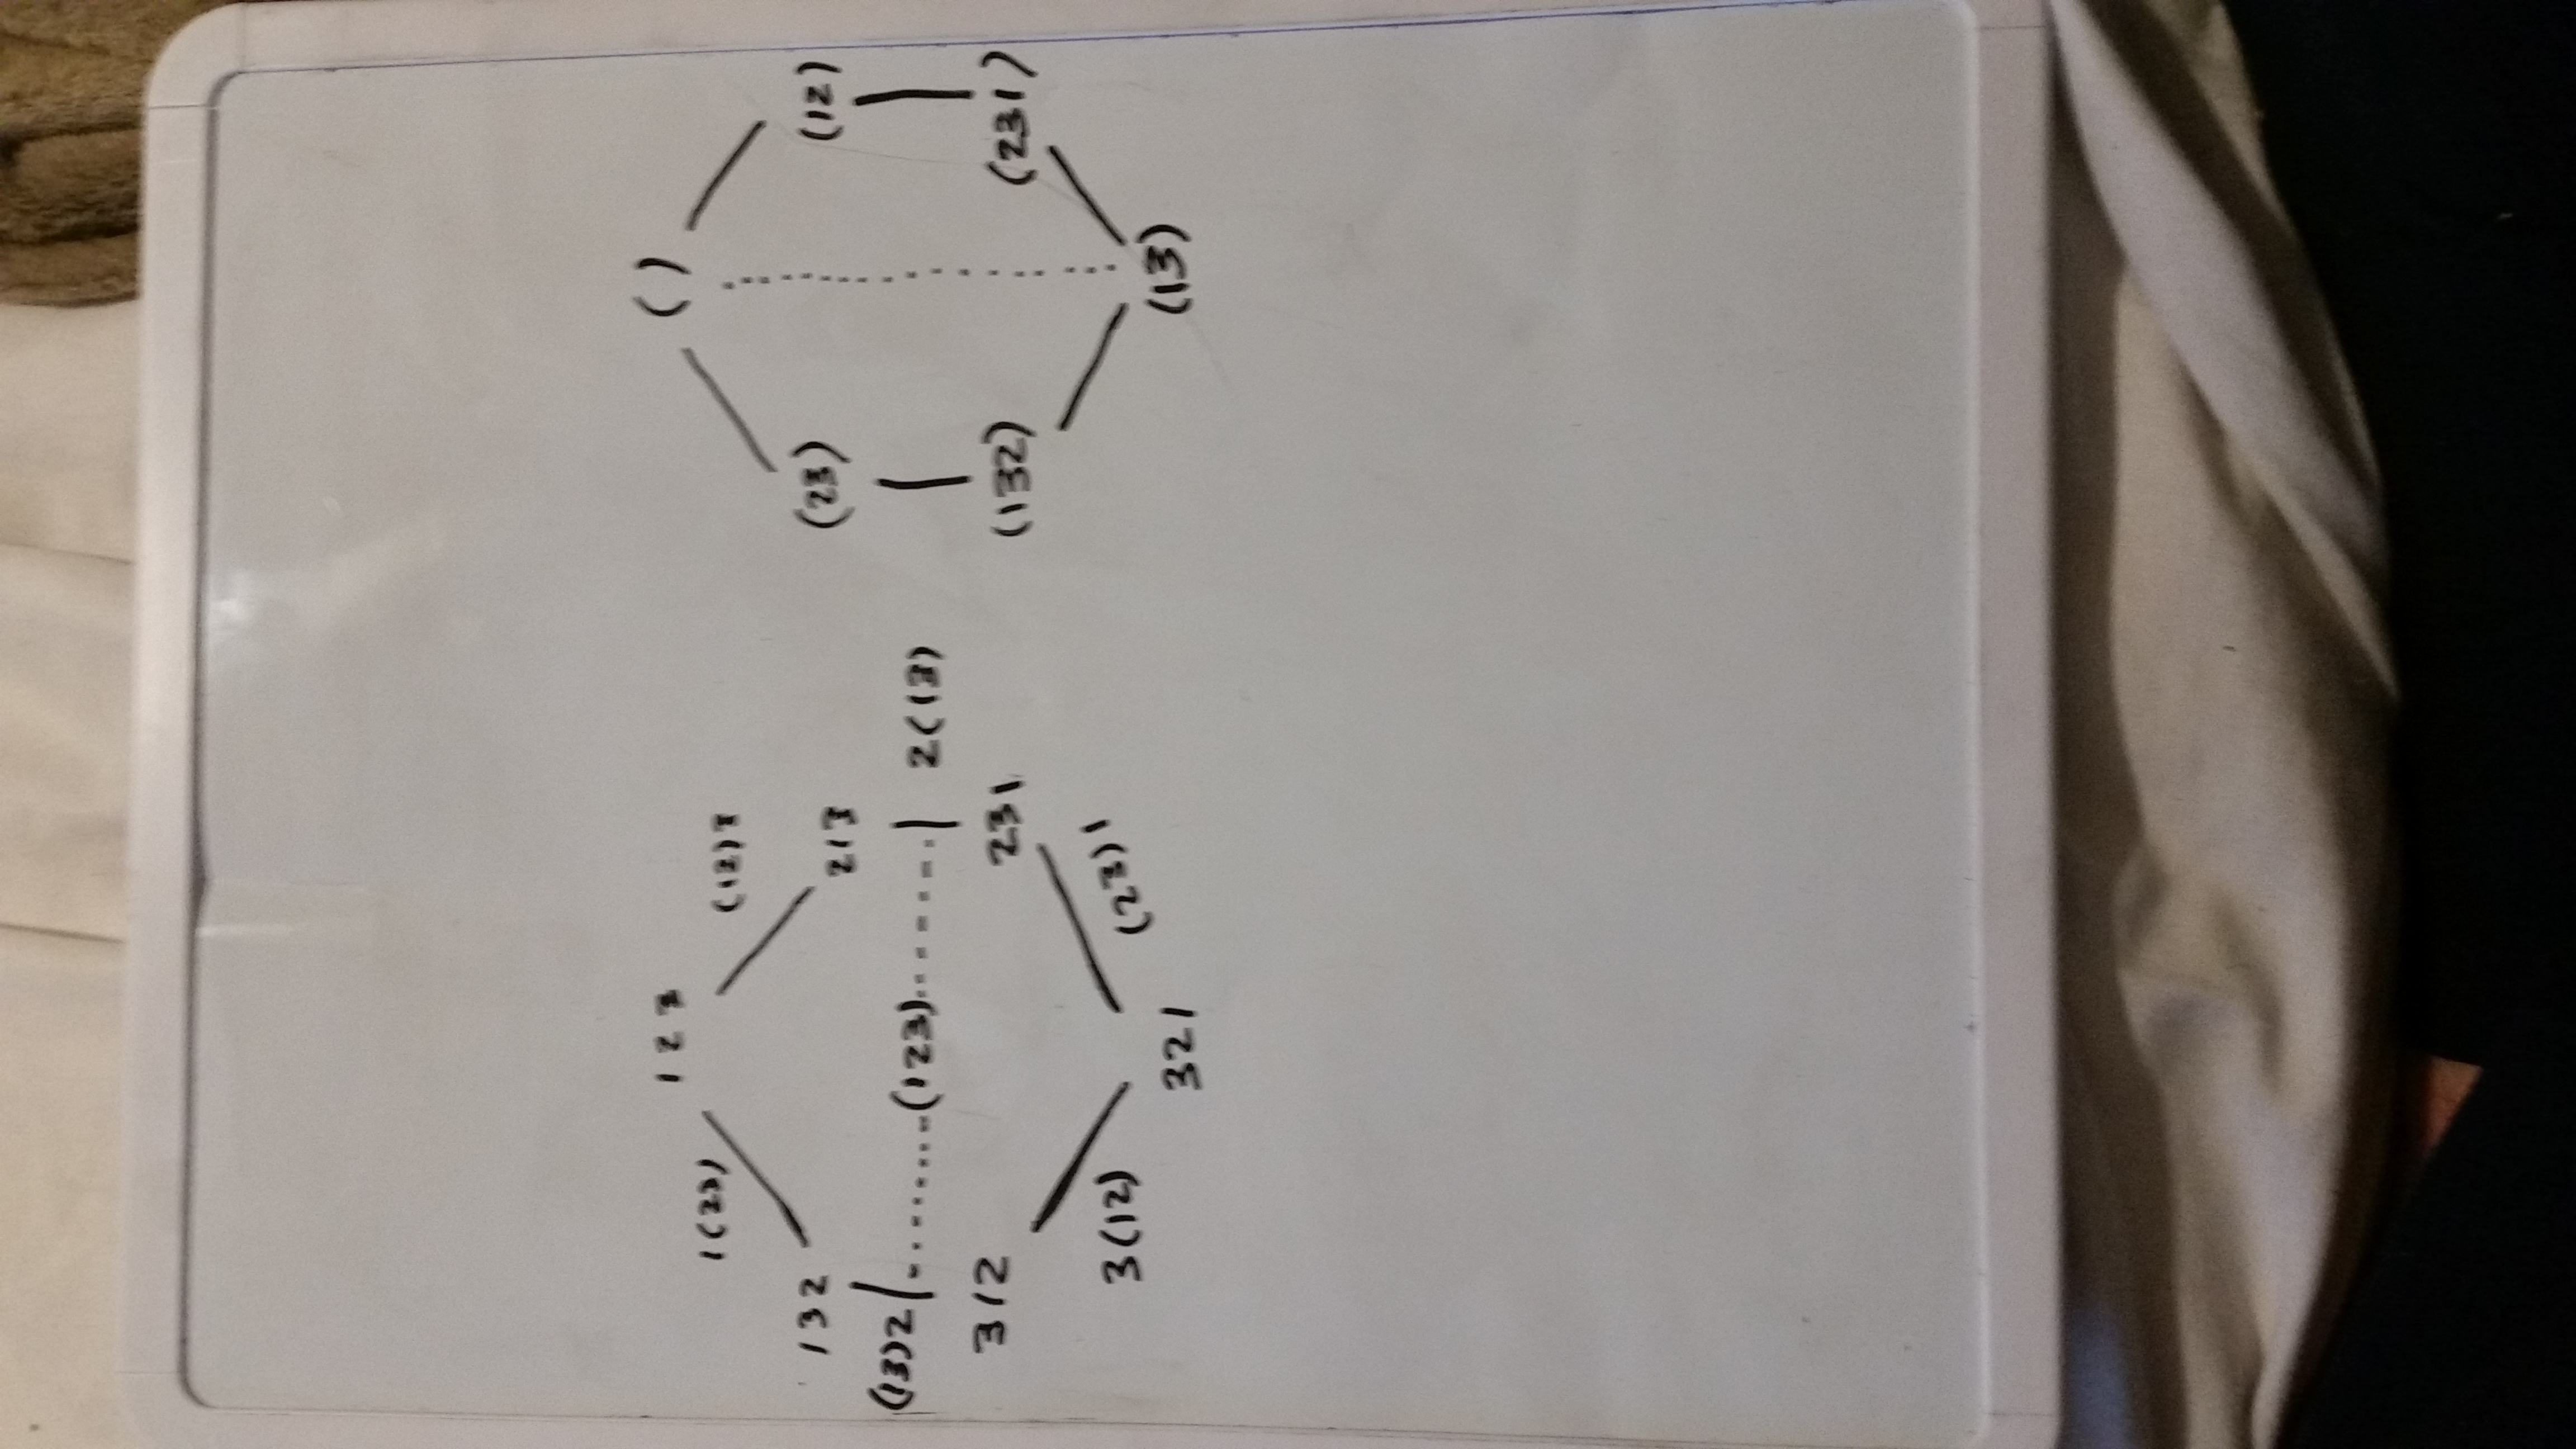 123
1(23)
(12)3
132
213
(13)2
(123)
2(13)
312
231
3(12)
(23)1
321
()
(23)
(12)
(132)
(231)
(13)